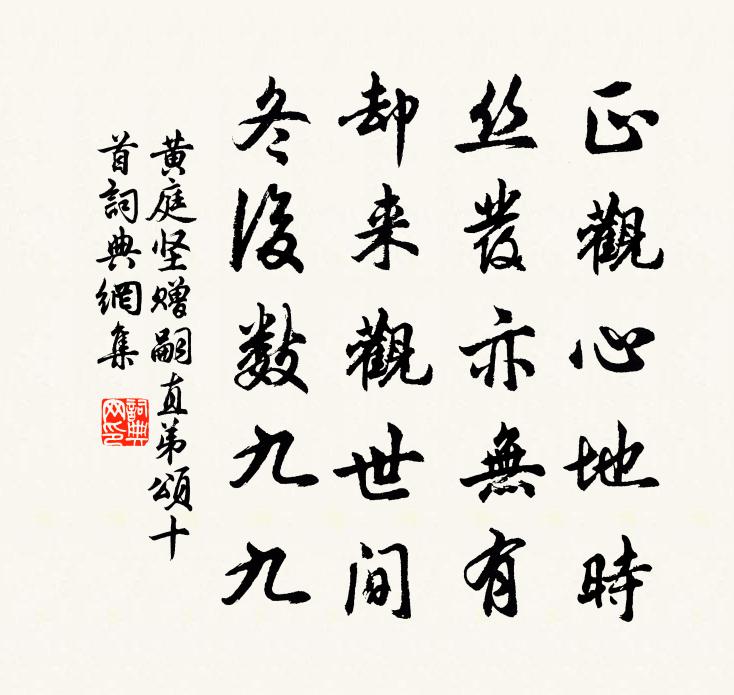 正觀心地時
丝發亦無有
却来觀世间
冬後數九九
黄庭坚赠嗣直弟頌十
首詞典網集
詞典
网印